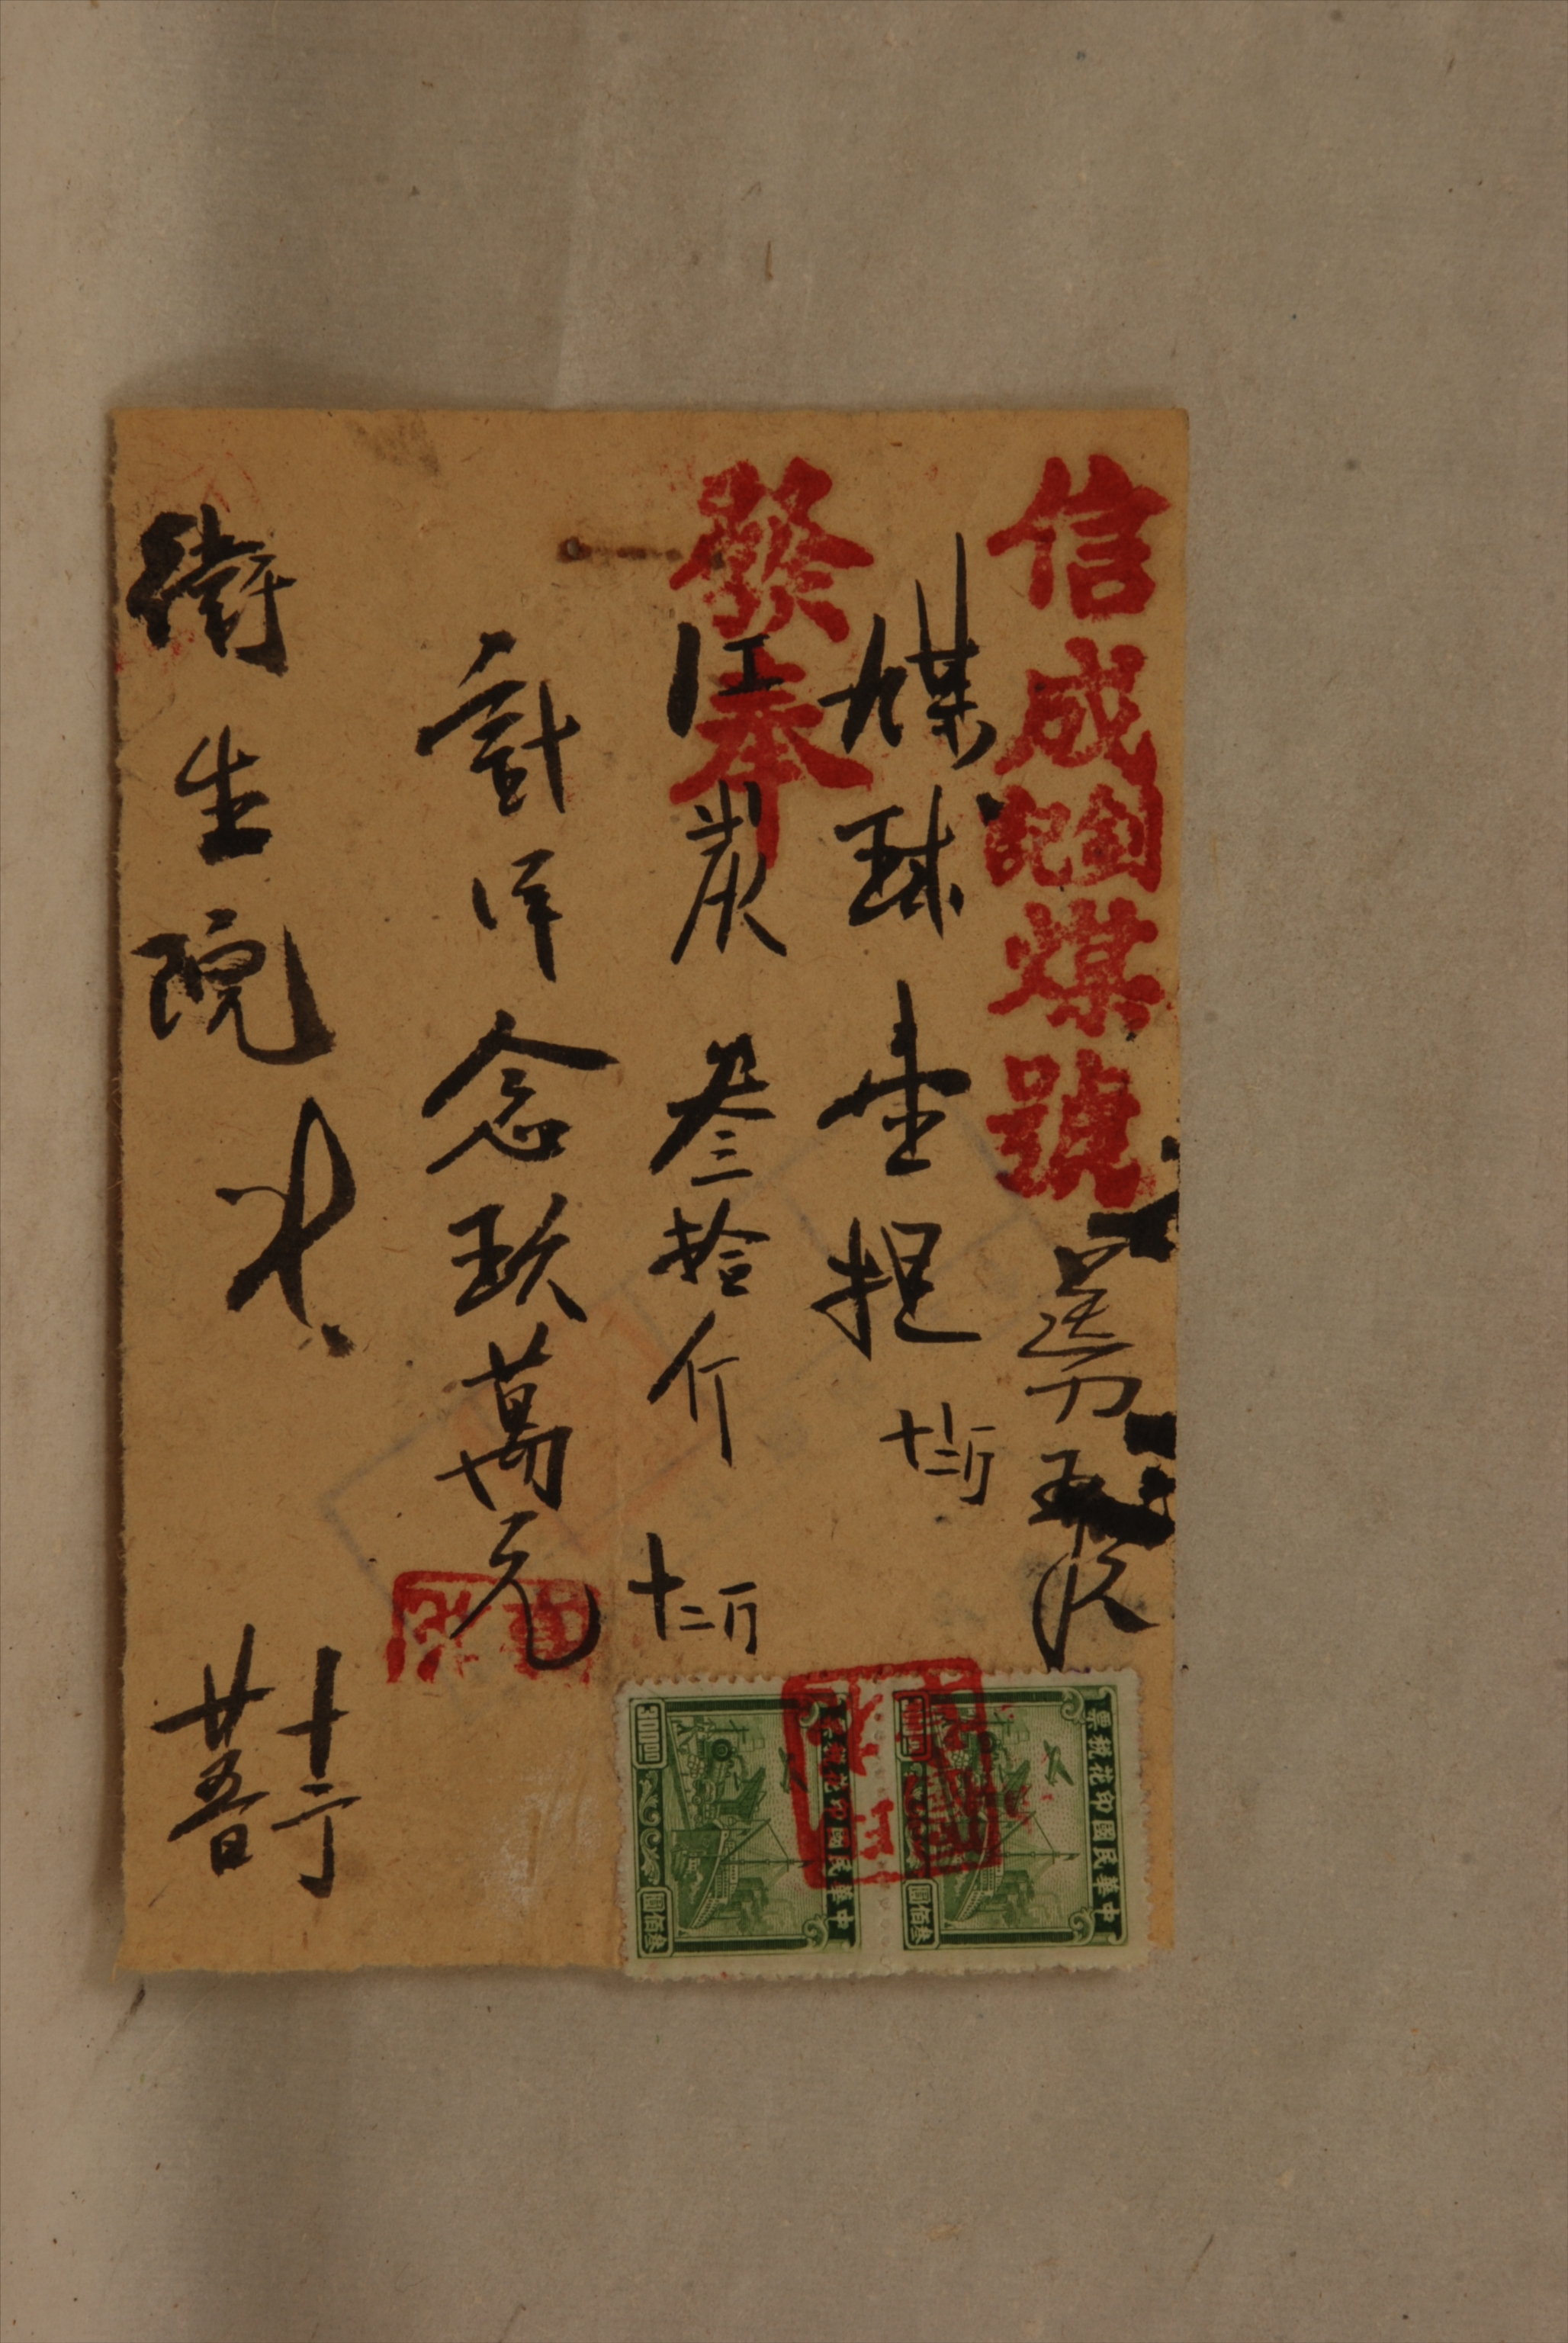 信成劉記煤號
奉發
煤球壹担 十二斤
江炭叁拾斤 十二斤
計洋念玖萬元
衛生院
十二月
廿五日
中華民國印花税票
叁佰圓
300.00
中華民國印花税票
叁佰圓